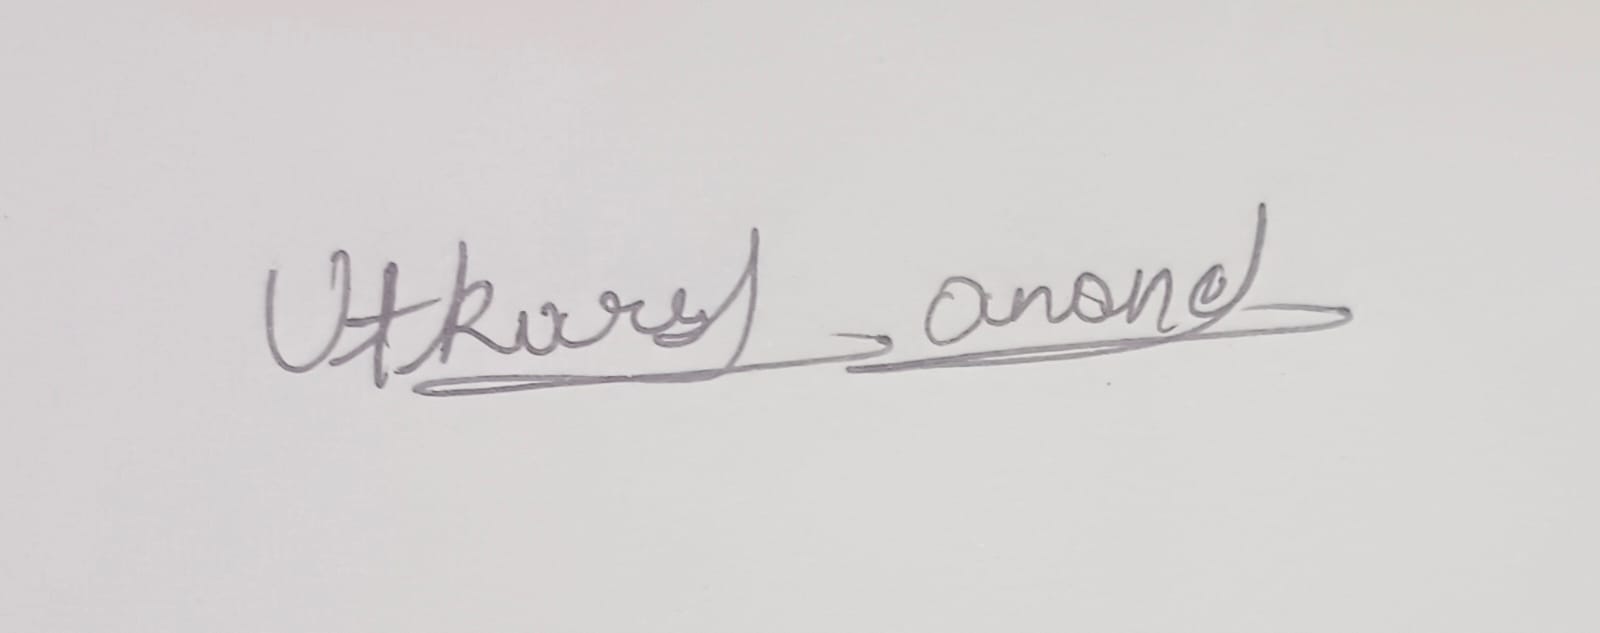 Utkarsh anand